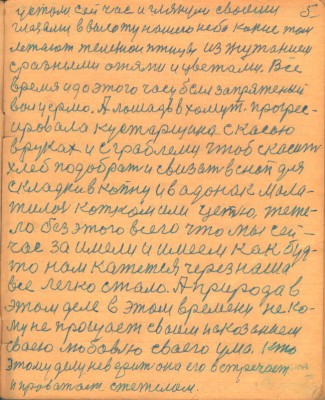 5
цетом сей час и гляним своеми
глазами в высоту нашего неба какие там
летают птицы из жутанием
с разными огнями и цветами. Всё
время и до этого часу был запряженый
вол и ермо. А лошадь в хомут. прогрес-
ировала кустарщина с касою
в руках и с граблеми чтоб скасить
хлеб подобрат и свизат в сноп для
складки в копну и в
тилос котком или цепю, теже-
ло без этого всего что мы сей-
час за имели и имеем как буд-
то нам кажется через наша
все легко стало. А природа в
этом деле в этом времени не ко-
му не прощает своим наказанием
своею любовлю своего ума. Кто
этому делу не верит она его встречает
и проважает с тежелам.